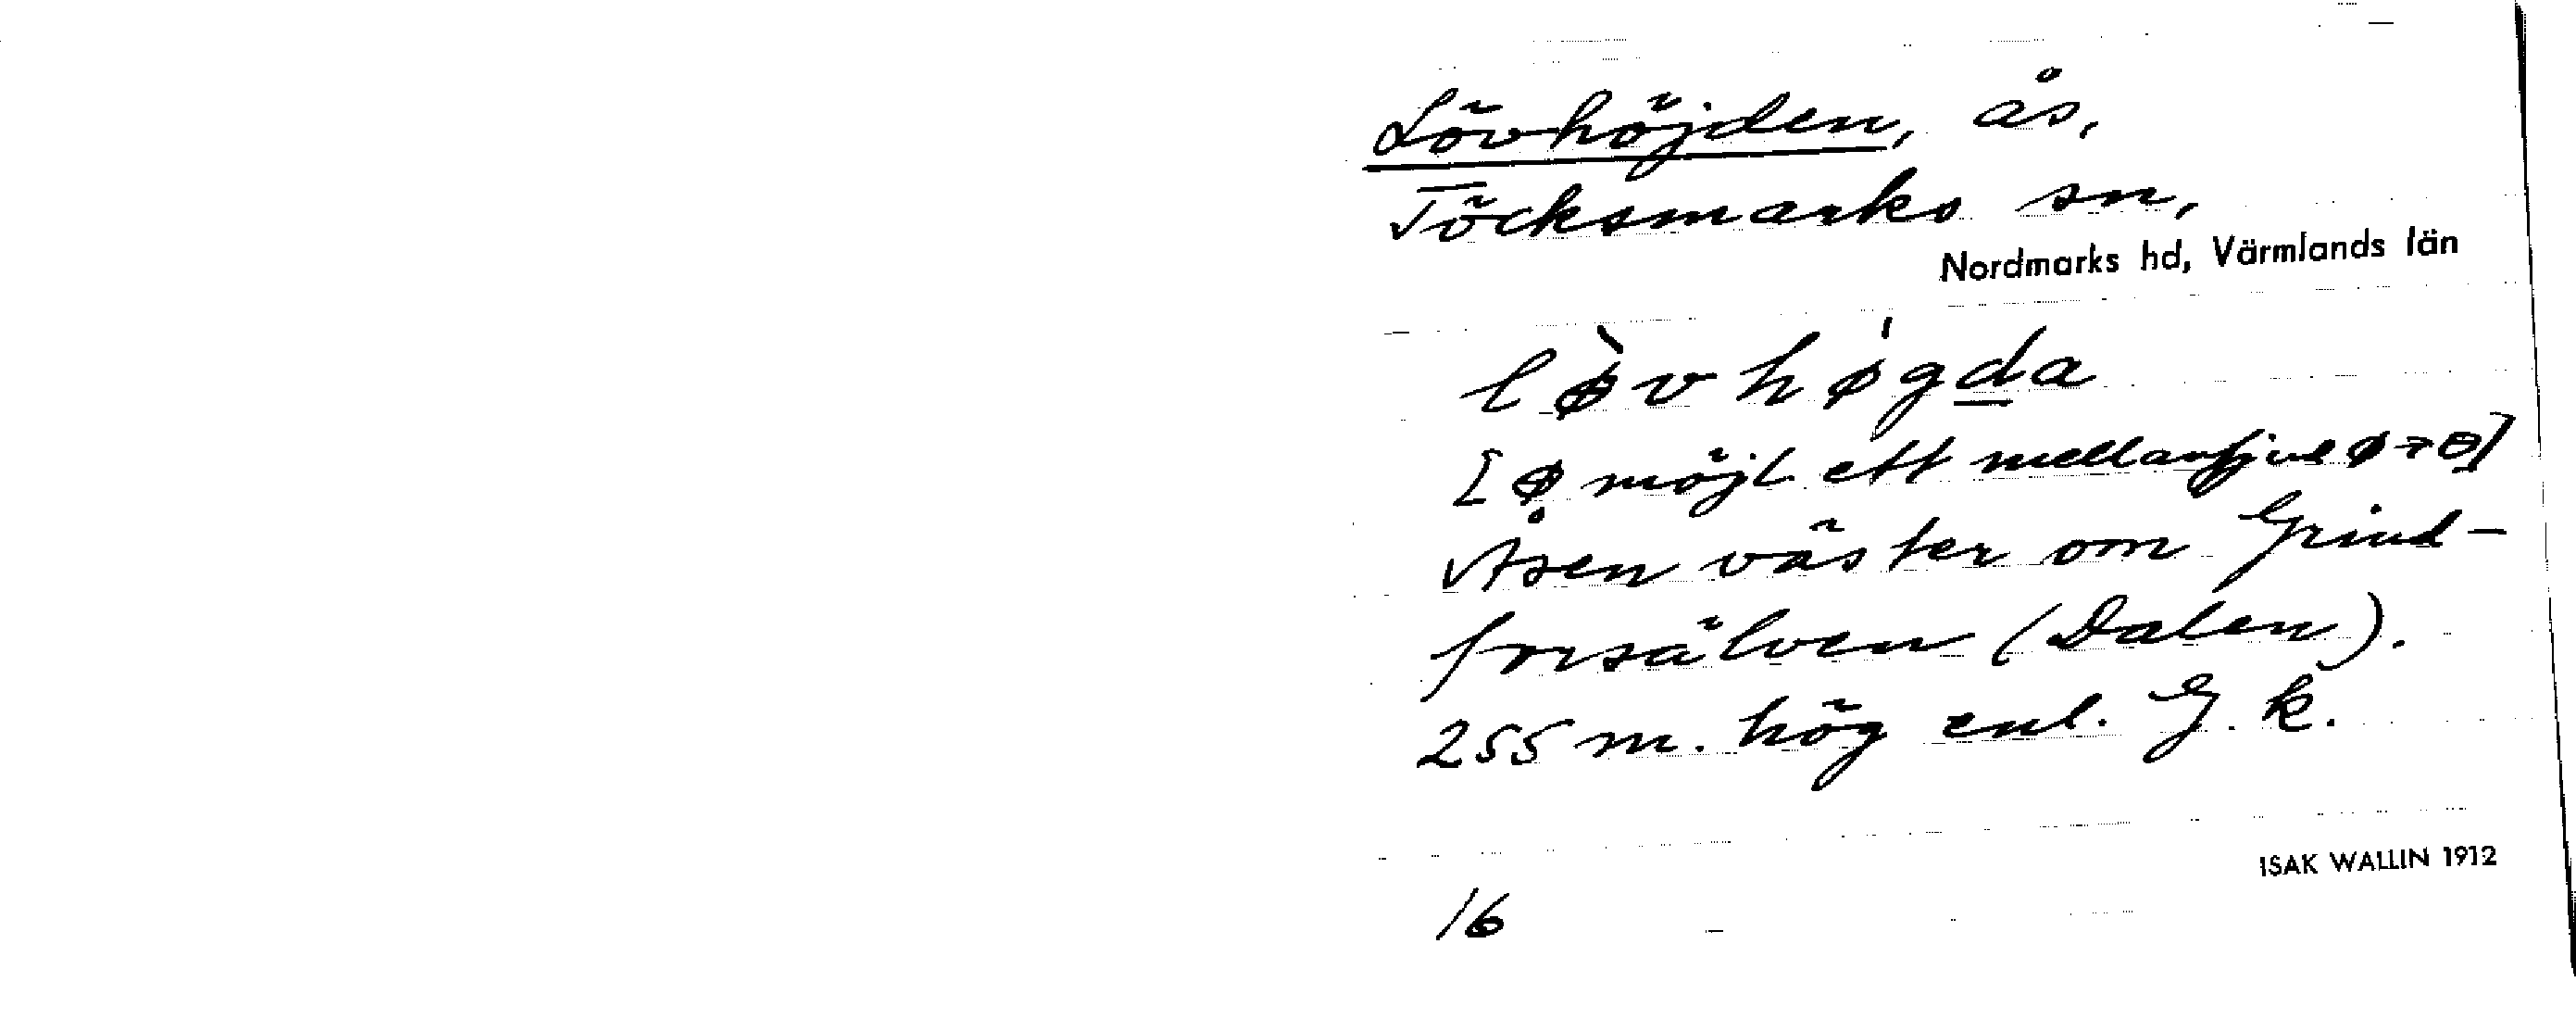 Lövhöjden, ås,
Töcksmarks sn,
Nordmarks hd, Värmlands län
lø̀vhǿgda
[ø möjl. ett mellanljud ø-ɵ]
Åsen väster om Grind-
forsälven (Dalen).
255 m. hög enl. G. k.
ISAK WALLIN 1912
16